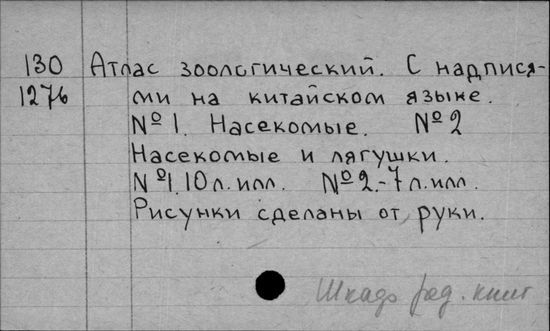 130 Атлас зоологический. С надпися-
1276 ми на китайском языке.
№ 1. Насекомые. № 2
Насекомые и лягушки.
№ 1. 10 л. илл. № 2.-7 л. илл.
Рисунки сделаны от руки.
Шкаф ред. книг